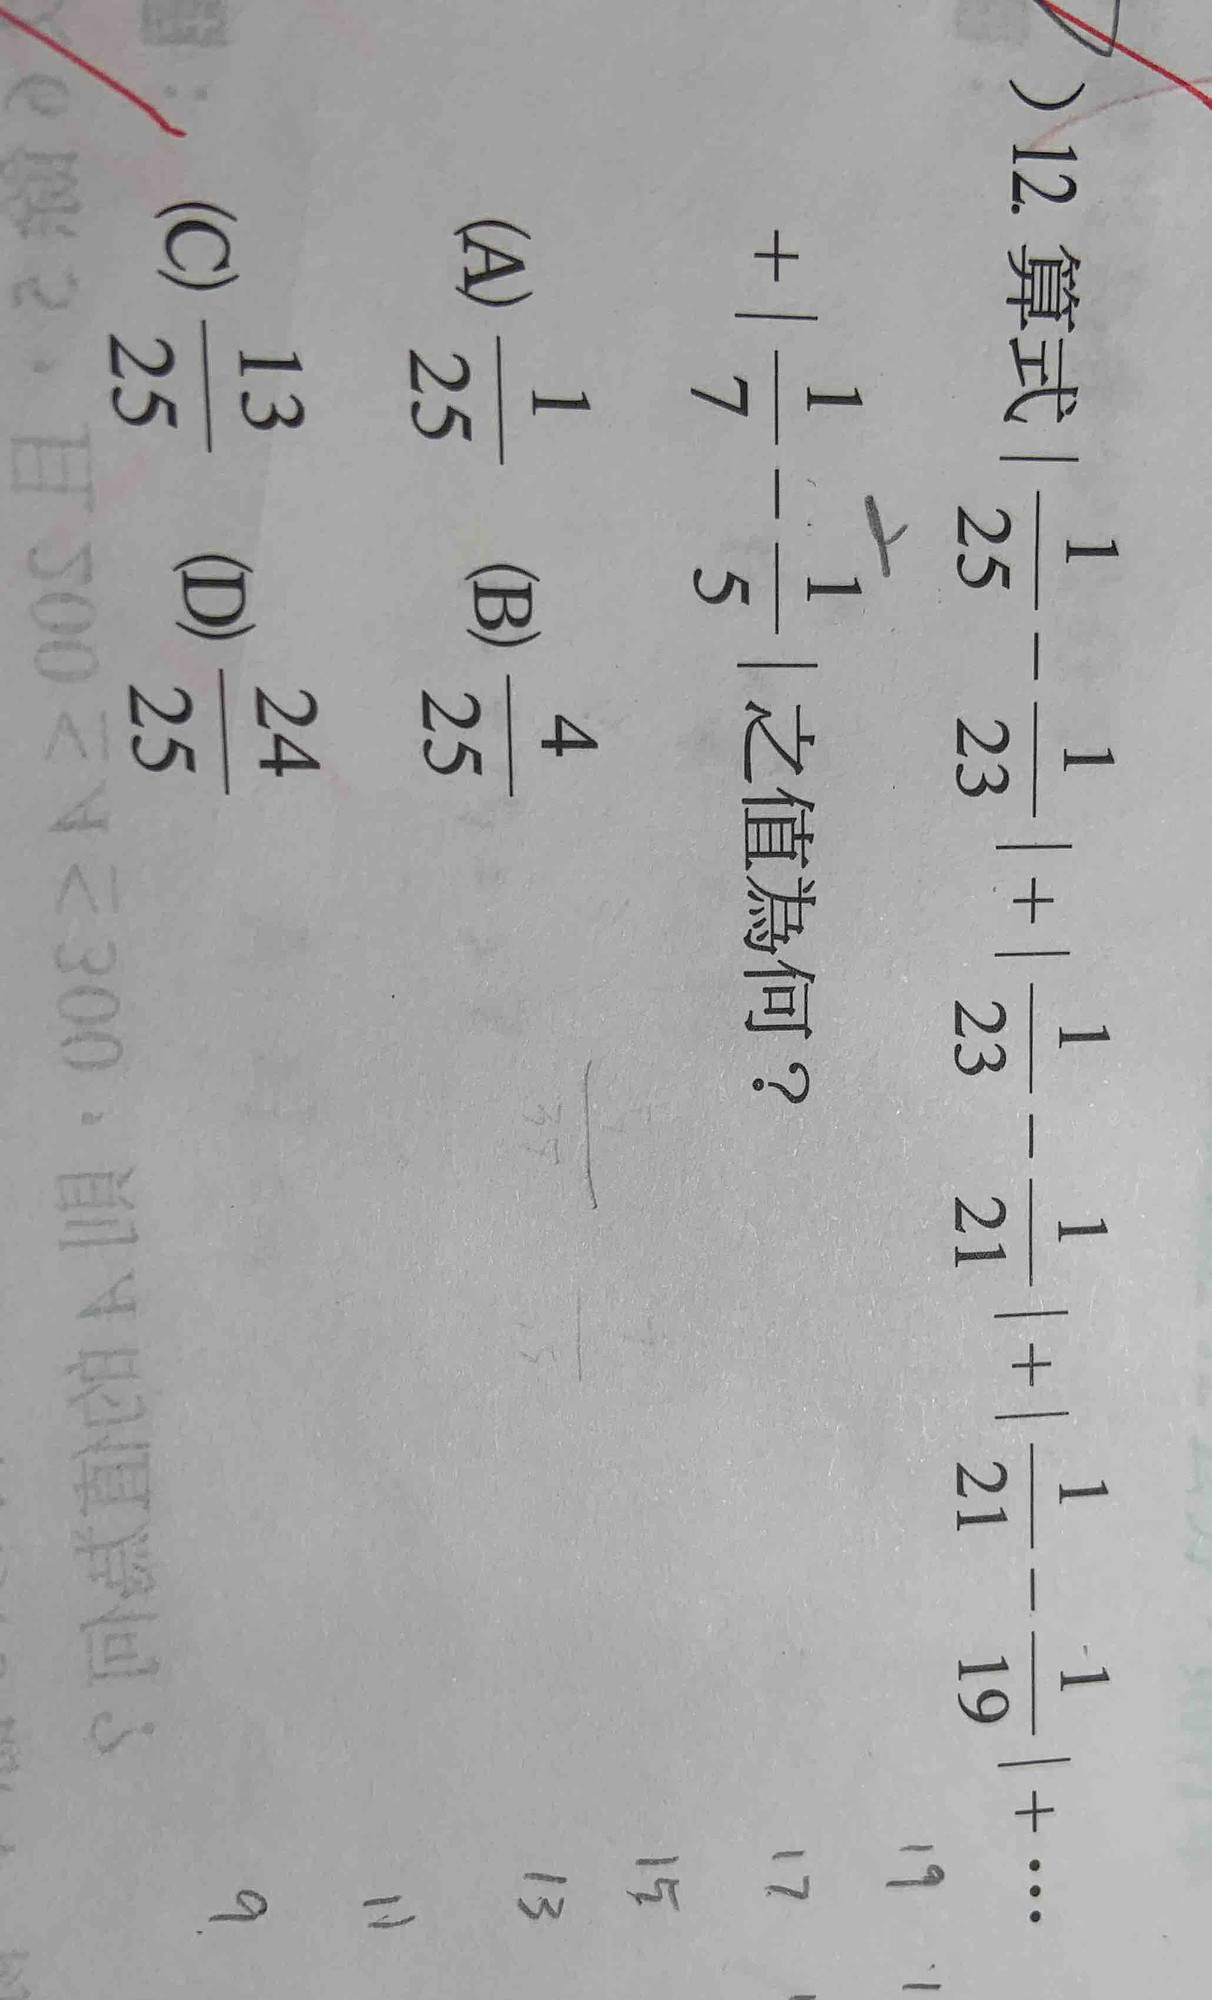 )12. 算式|1/25 - 1/23| + |1/23 - 1/21| + |1/21 - 1/19| + …
+ |1/7 - 1/5|之值為何？
(A) 1/25 (B) 4/25
(C) 13/25 (D) 24/25
19
17
15
13
11
9